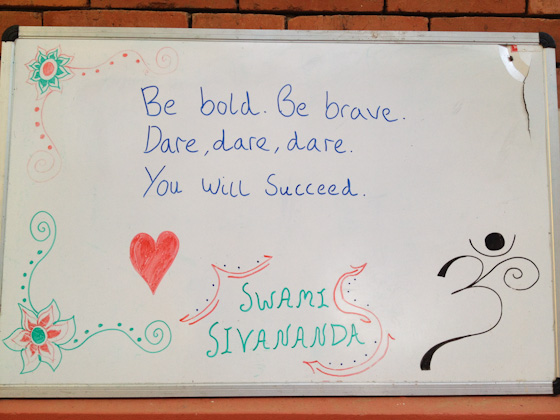 Be bold. Be brave.
Dare, dare, dare.
You will Succeed.
SWAMI
SIVANANDA